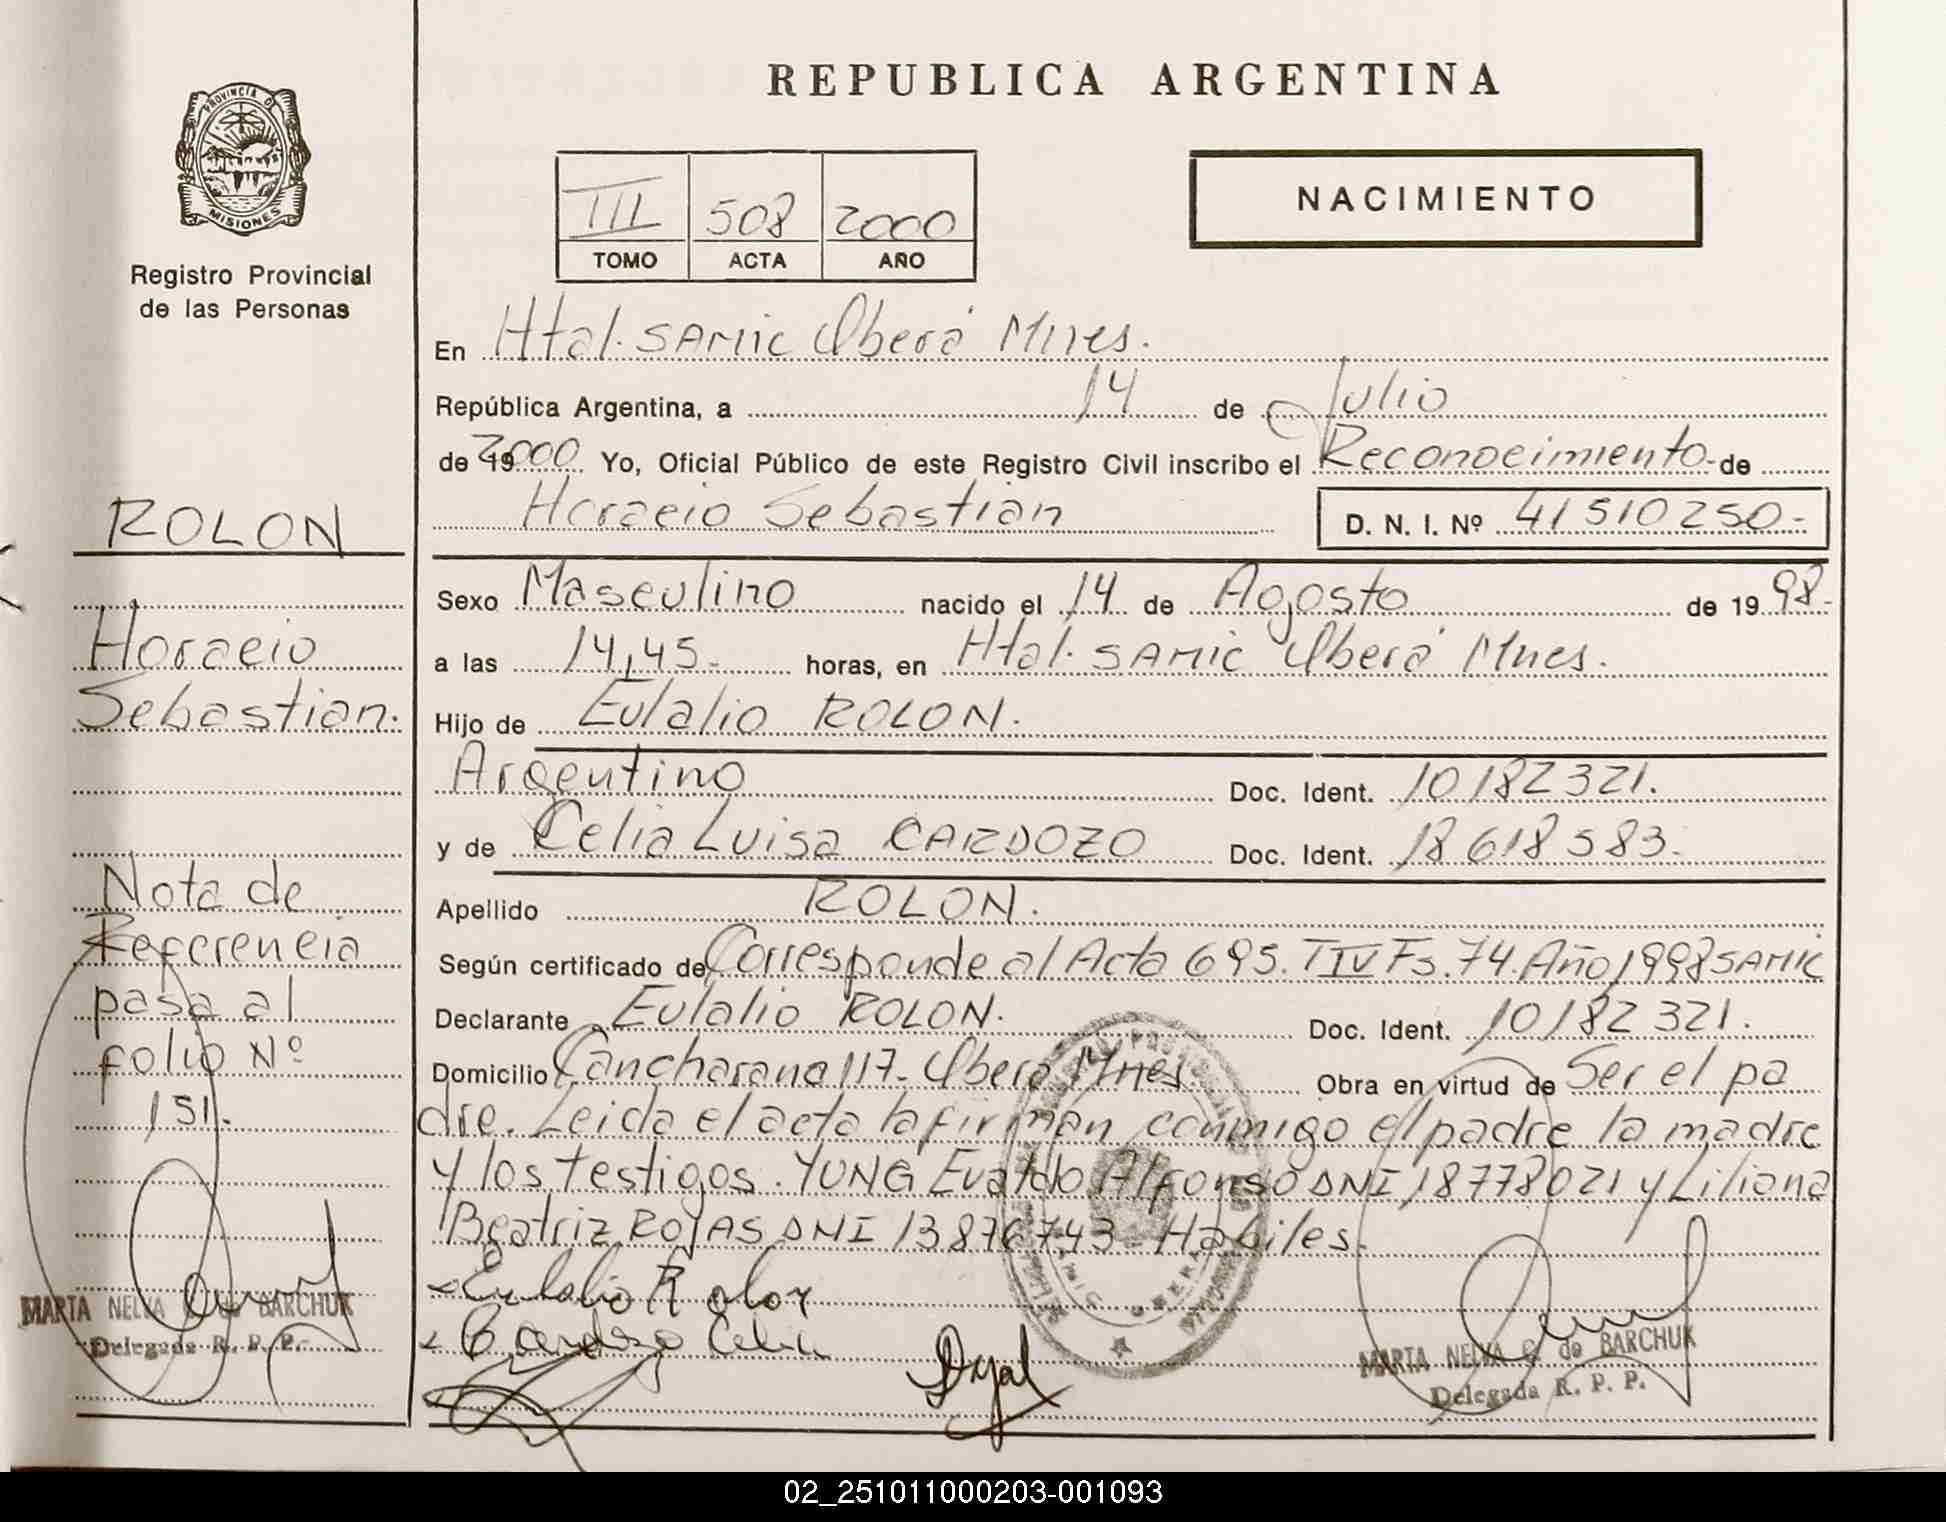 PROVINCIA D
MISIONES
Registro Provincial
de las Personas
ROLON
Horacio
Sebastian.
Nota de
Referencia
pasa al
folio Nº
151.
MARTA NELVA BARCHUK
Delegada R. P. P.
REPUBLICA ARGENTINA
NACIMIENTO
III 508 2000
TOMO ACTA AÑO
En Htal. SAMIC Oberá Mnes.
República Argentina, a 14 de Julio
de 19 2000 Yo, Oficial Público de este Registro Civil inscribo el Reconocimiento de
Horacio Sebastián D. N. I. Nº 41510250-
Sexo Masculino nacido el 14 de Agosto de 19 98-
a las 14,45- horas, en Htal. SAMIC Oberá Mnes.
Hijo de Eulalio ROLON.
Argentino Doc. Ident. 10182321.
y de Celia Luisa CARDOZO Doc. Ident. 18618583-
Apellido ROLON.
Según certificado de Corresponde al Acta 695. TIV Fs. 74. Año 1998 SAMIC
Declarante Eulalio ROLON. Doc. Ident. 10182321.
Domicilio Cancharana 117- Oberá Mnes. Obra en virtud de Ser el pa
dre. Leida el acta la firman conmigo el padre la madre
y los testigos. YUNG Evaldo Alfonso DNI 18778021 y Liliana
Beatriz ROJAS DNI 13876743- Habiles.
Eulalio Rolon
Cardozo Celia
OBERA
MARTA NELVA G. de BARCHUK
Delegada R. P. P.
02_251011000203-001093